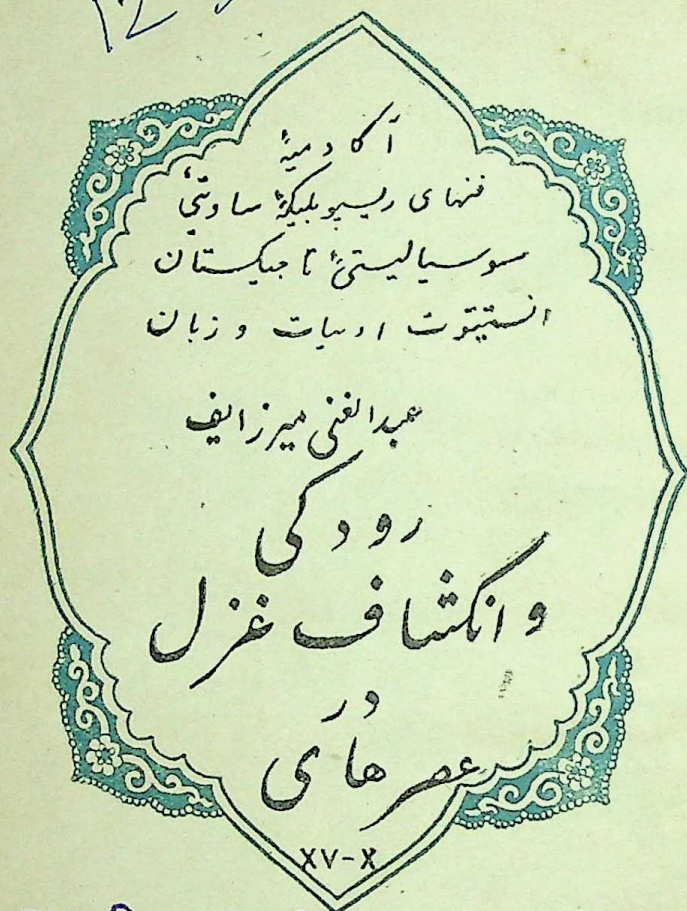 آکادمیهٔ
فنهای ریسپوبلیکهٔ ساوتیٔ
سوسیالیستیٔ تاجیکستان
انستیتوت ادبیات و زبان
عبدالغنی میرزایف
رودکی
و انکشاف غزل
در
عصرهای
XV-X